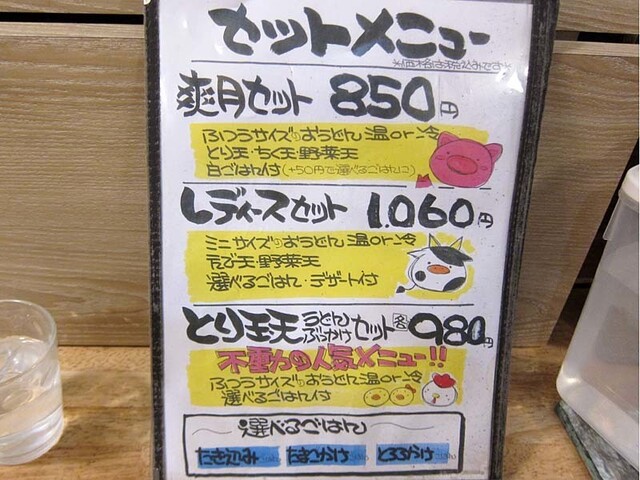 セットメニュー
※価格は税込みです※
爽月セット 850円
ふつうサイズのおうどん 温or冷
とり天・ちく天・野菜天
白ごはん付(+50円で選べるごはんに)
レディースセット 1,060円
ミニサイズのおうどん 温or冷
えび天・野菜天
選べるごはん・デザート付
とり玉天 うどん ぶっかけ セット 各980円
不動の人気メニュー!!
ふつうサイズのおうどん 温or冷
選べるごはん付
選べるごはん
たき込み たまごかけ とろろかけ